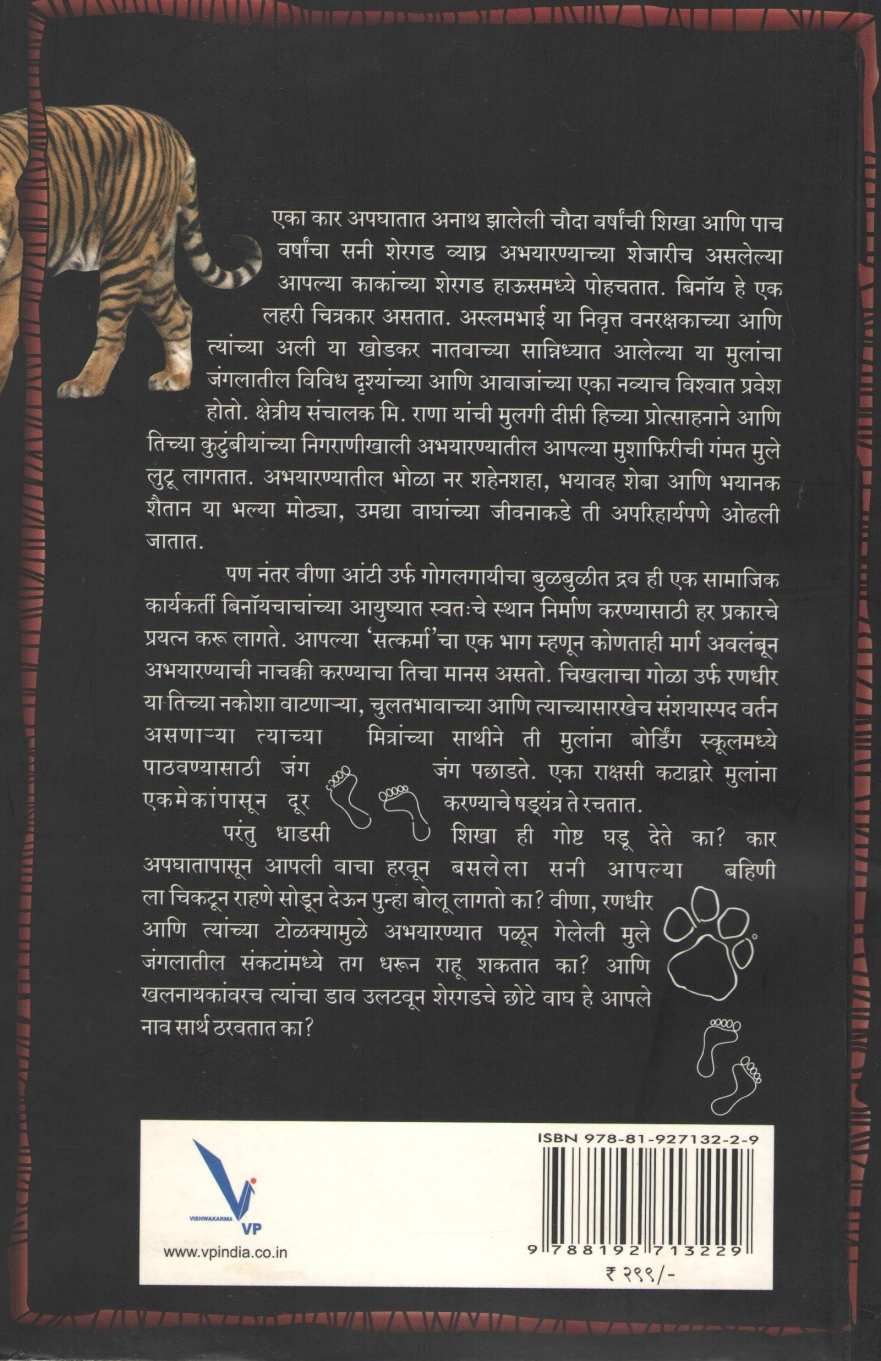 एका कार अपघातात अनाथ झालेली चौदा वर्षांची शिखा आणि पाच
वर्षांचा सनी शेरगड व्याघ्र अभयारण्याच्या शेजारीच असलेल्या
आपल्या काकांच्या शेरगड हाऊसमध्ये पोहचतात. बिनॉय हे एक
लहरी चित्रकार असतात. अस्लमभाई या निवृत्त वनरक्षकाच्या आणि
त्यांच्या अली या खोडकर नातवाच्या सान्निध्यात आलेल्या या मुलांचा
जंगलातील विविध दृश्यांच्या आणि आवाजांच्या एका नव्याच विश्वात प्रवेश
होतो. क्षेत्रीय संचालक मि. राणा यांची मुलगी दीप्ती हिच्या प्रोत्साहनाने आणि
तिच्या कुटुंबीयांच्या निगराणीखाली अभयारण्यातील आपल्या मुशाफिरीची गंमत मुले
लुटू लागतात. अभयारण्यातील भोळा नर शहेनशहा, भयावह शेबा आणि भयानक
शैतान या भल्या मोठ्या, उमद्या वाघांच्या जीवनाकडे ती अपरिहार्यपणे ओढली
जातात.
पण नंतर वीणा आंटी उर्फ गोगलगायीचा बुळबुळीत द्रव ही एक सामाजिक
कार्यकर्ती बिनॉयचाचांच्या आयुष्यात स्वतःचे स्थान निर्माण करण्यासाठी हर प्रकारचे
प्रयत्न करू लागते. आपल्या ‘सत्कर्मा’चा एक भाग म्हणून कोणताही मार्ग अवलंबून
अभयारण्याची नाचक्की करण्याचा तिचा मानस असतो. चिखलाचा गोळा उर्फ रणधीर
या तिच्या नकोशा वाटणाऱ्या, चुलतभावाच्या आणि त्याच्यासारखेच संशयास्पद वर्तन
असणाऱ्या त्याच्या मित्रांच्या साथीने ती मुलांना बोर्डिंग स्कूलमध्ये
पाठवण्यासाठी जंग जंग पछाडते. एका राक्षसी कटाद्वारे मुलांना
एकमेकांपासून दूर करण्याचे षड्यंत्र ते रचतात.
परंतु धाडसी शिखा ही गोष्ट घडू देते का? कार
अपघातापासून आपली वाचा हरवून बसलेला सनी आपल्या बहिणी
ला चिकटून राहणे सोडून देऊन पुन्हा बोलू लागतो का? वीणा, रणधीर
आणि त्यांच्या टोळक्यामुळे अभयारण्यात पळून गेलेली मुले
जंगलातील संकटांमध्ये तग धरून राहू शकतात का? आणि
खलनायकांवरच त्यांचा डाव उलटवून शेरगडचे छोटे वाघ हे आपले
नाव सार्थ ठरवतात का?
ISBN 978-81-927132-2-9
VISHWAKARMA
VP
www.vpindia.co.in
9 788192 713229
₹ २९९/-